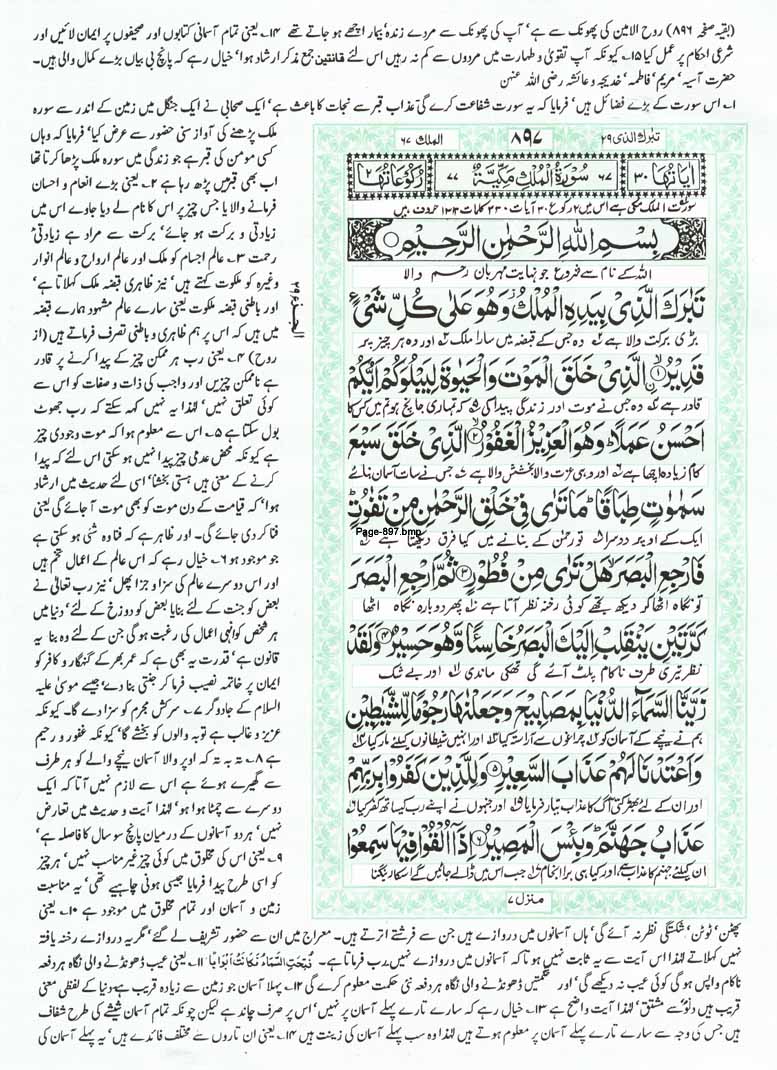 (بقیہ صفحہ ۸۹۶) روح الامین کی پھونک سے ہے' آپ کی پھونک سے مردے زندہ' بیمار اچھے ہو جاتے تھے ۱۴۔ یعنی تمام آسمانی کتابوں اور صحیفوں پر ایمان لائیں اور
شرعی احکام پر عمل کیا ۱۵۔ کیونکہ آپ تقویٰ و طہارت میں مردوں سے کم نہ رہیں اس لئے قانتین جمع مذکر ارشاد ہوا' خیال رہے کہ پانچ بی بیاں بڑے کمال والی ہیں۔
حضرت آسیہ' مریم' فاطمہ' خدیجہ و عائشہ رضی اللہ عنہن
۱۔ اس سورت کے بڑے فضائل ہیں' فرمایا کہ یہ سورت شفاعت کرے گی' عذاب قبر سے نجات کا باعث ہے' ایک صحابی نے ایک جنگل میں زمین کے اندر سے سورہ
ملک پڑھنے کی آواز سنی حضور سے عرض کیا' فرمایا کہ وہاں
کسی مومن کی قبر ہے جو زندگی میں سورہ ملک پڑھا کرتا تھا
اب بھی قبر میں پڑھ رہا ہے ۲۔ یعنی بڑے انعام و احسان
فرمانے والا یا جس چیز پر اس کا نام لے دیا جاوے اس میں
زیادتی و برکت ہو جائے' برکت سے مراد ہے زیادتی'
رحمت ۳۔ عالم اجسام کو ملک اور عالم ارواح و عالم انوار
وغیرہ کو ملکوت کہتے ہیں' نیز ظاہری قبضہ ملک کہلاتا ہے'
اور باطنی قبضہ ملکوت یعنی سارے عالم مشہود ہمارے قبضہ
میں ہیں کہ اس پر ہم ظاہری و باطنی تصرف فرماتے ہیں (از
روح) ۴۔ یعنی رب ہر ممکن چیز کے پیدا کرنے پر قادر
ہے ناممکن چیزیں اور واجب کی ذات و صفات کو اس سے
کوئی تعلق نہیں' لہذا یہ نہیں کہہ سکتے کہ رب جھوٹ
بول سکتا ہے ۵۔ اس سے معلوم ہوا کہ موت وجودی چیز
ہے کیونکہ محض عدمی چیز پیدا نہیں ہو سکتی اس لئے کہ پیدا
کرنے کے معنی ہیں ہستی بخشنا' اسی لئے حدیث میں ارشاد
ہوا' کہ قیامت کے دن موت کو بھی موت آ جائے گی یعنی
فنا کر دی جائے گی۔ اور ظاہر ہے کہ فنا وہ شئی ہو سکتی ہے
جو موجود ہو ۶۔ خیال رہے کہ اس عالم کے اعمال تخم ہیں
اور اس دوسرے عالم کی سزا و جزا پھل' نیز رب تعالیٰ نے
بعض کو جنت کے لئے بنایا بعض کو دوزخ کے لئے' دنیا میں
ہر شخص کو انہی اعمال کی رغبت ہو گی جن کے لئے وہ بنا یہ
قانون ہے' قدرت یہ بھی ہے کہ عمر بھر کے گنہگار و کافر کو
ایمان پر خاتمہ نصیب فرما کر جنتی بنا دے' جیسے موسیٰ علیہ
السلام کے جادوگر ۷۔ سرکش مجرم کو سزا دے گا۔ کیونکہ
عزیز و غالب ہے توبہ والوں کو بخشے گا' کیونکہ غفور و رحیم
ہے ۸۔ تہ بہ تہ کہ اوپر والا آسمان نیچے والے کو ہر طرف
سے گھیرے ہوئے ہے اس سے لازم نہیں آتا کہ ایک
دوسرے سے چمٹا ہوا ہو' لہذا آیت و حدیث میں تعارض
نہیں' ہر دو آسمانوں کے درمیان پانچ سو سال کا فاصلہ ہے'
۹۔ یعنی اس کی مخلوق میں کوئی چیز غیر مناسب نہیں' ہر چیز
کو اسی طرح پیدا فرمایا جیسی ہونی چاہیے تھی' یہ مناسبت
زمین و آسمان اور تمام مخلوق میں موجود ہے ۱۰۔ یعنی
تبٰرک الذی ۲۹
۸۹۷
الملک ۶۷
اٰیاتھا ۳۰
۶۷ سُوْرَۃُ الْمُلْکِ مَکِّیَّۃٌ ۷۷
رکوعاتھا ۲
سورت الملک مکی ہے اس میں ۲ رکوع ۳۰ آیات ۳۳۰ کلمات ۱۳۱۳ حروف ہیں
بِسْمِ اللهِ الرَّحْمٰنِ الرَّحِیْمِ
اللہ کے نام سے شروع جو نہایت مہربان رحم والا
تَبٰرَکَ الَّذِیْ بِیَدِهِ الْمُلْکُ وَهُوَ عَلٰی کُلِّ شَیْءٍ
بڑی برکت والا ہے وہ جس کے قبضہ میں سارا ملک اور وہ ہر چیز پر
قَدِیْرُ ۱ الَّذِیْ خَلَقَ الْمَوْتَ وَالْحَیٰوةَ لِیَبْلُوَکُمْ اَیُّکُمْ
قادر ہے وہ جس نے موت اور زندگی پیدا کی کہ تمہاری جانچ ہو تم میں کس کا
اَحْسَنُ عَمَلًا وَهُوَ الْعَزِیْزُ الْغَفُوْرُ ۲ الَّذِیْ خَلَقَ سَبْعَ
کام زیادہ اچھا ہے اور وہی عزت والا بخشش والا ہے جس نے سات آسمان بنائے
سَمٰوٰتٍ طِبَاقًا مَا تَرٰی فِیْ خَلْقِ الرَّحْمٰنِ مِنْ تَفٰوُتٍ
Page-897.bmp
ایک کے اوپر دوسرا تو رحمن کے بنانے میں کیا فرق دیکھتا ہے
فَارْجِعِ الْبَصَرَ هَلْ تَرٰی مِنْ فُطُوْرٍ ۳ ثُمَّ ارْجِعِ الْبَصَرَ
تو نگاہ اٹھا کر دیکھ تجھے کوئی رخنہ نظر آتا ہے پھر دوبارہ نگاہ اٹھا
کَرَّتَیْنِ یَنْقَلِبْ اِلَیْکَ الْبَصَرُ خَاسِئًا وَّهُوَ حَسِیْرٌ ۴ وَلَقَدْ
نظر تیری طرف ناکام پلٹ آئے گی تھکی ماندی اور بے شک
زَیَّنَّا السَّمَآءَ الدُّنْیَا بِمَصَابِیْحَ وَجَعَلْنٰهَا رُجُوْمًا لِّلشَّیٰطِیْنِ
ہم نے نیچے کے آسمان کو چراغوں سے آراستہ کیا اور انہیں شیطانوں کیلئے مار کیا
وَاَعْتَدْنَا لَهُمْ عَذَابَ السَّعِیْرِ ۵ وَلِلَّذِیْنَ کَفَرُوْا بِرَبِّهِمْ
اور ان کے لئے بھڑکتی آگ کا عذاب تیار فرمایا اور جنہوں نے اپنے رب کیساتھ کفر کیا
عَذَابُ جَهَنَّمَ وَبِئْسَ الْمَصِیْرُ ۶ اِذَآ اُلْقُوْا فِیْهَا سَمِعُوْا
ان کیلئے جہنم کا عذاب ہے، اور کیا ہی برا انجام جب اس میں ڈالے جائیں گے اسکا رینکنا
منزل ۷
الجزء ۲۹
پھٹن' ٹوٹن' شکستگی نظر نہ آئے گی' ہاں آسمانوں میں دروازے ہیں جن سے فرشتے اترتے ہیں۔ معراج میں ان سے حضور تشریف لے گئے' مگر یہ دروازے رخنہ یافتہ
نہیں کہلاتے لہذا اس آیت سے یہ ثابت نہیں ہوتا کہ آسمانوں میں دروازے نہیں۔ رب فرماتا ہے۔ فُتِحَتِ السَّمَآءُ فَکَانَتْ اَبْوَابًا ۱۱۔ یعنی عیب ڈھونڈنے والی نگاہ ہر دفعہ
ناکام واپس ہو گی کوئی عیب نہ دیکھے گی' اور حکمتیں ڈھونڈنے والی نگاہ ہر دفعہ نئی حکمت معلوم کرے گی ۱۲۔ پہلا آسمان جو زمین سے زیادہ قریب ہے دنیا کے لفظی معنی
قریب ہیں دنو سے مشتق' لہذا آیت واضح ہے ۱۳۔ خیال رہے کہ سارے تارے پہلے آسمان پر نہیں' اس پر صرف چاند ہے لیکن چونکہ تمام آسمان شیشے کی طرح شفاف
ہیں جس کی وجہ سے سارے تارے پہلے آسمان پر معلوم ہوتے ہیں لہذا وہ سب پہلے آسمان کی زینت ہیں ۱۴۔ یعنی ان تاروں سے مختلف فائدے ہیں' یہ پہلے آسمان کی